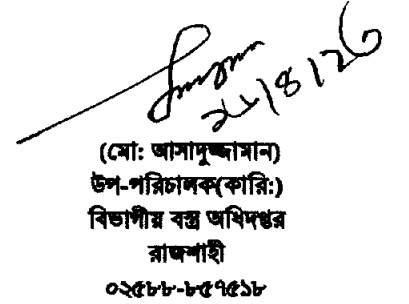 (মো: আসাদুজ্জামান)
উপ-পরিচালক(কারি:)
বিভাগীয় বস্ত্র অধিদপ্তর
রাজশাহী
০২৫৮৮-৮৫৭৫১৮